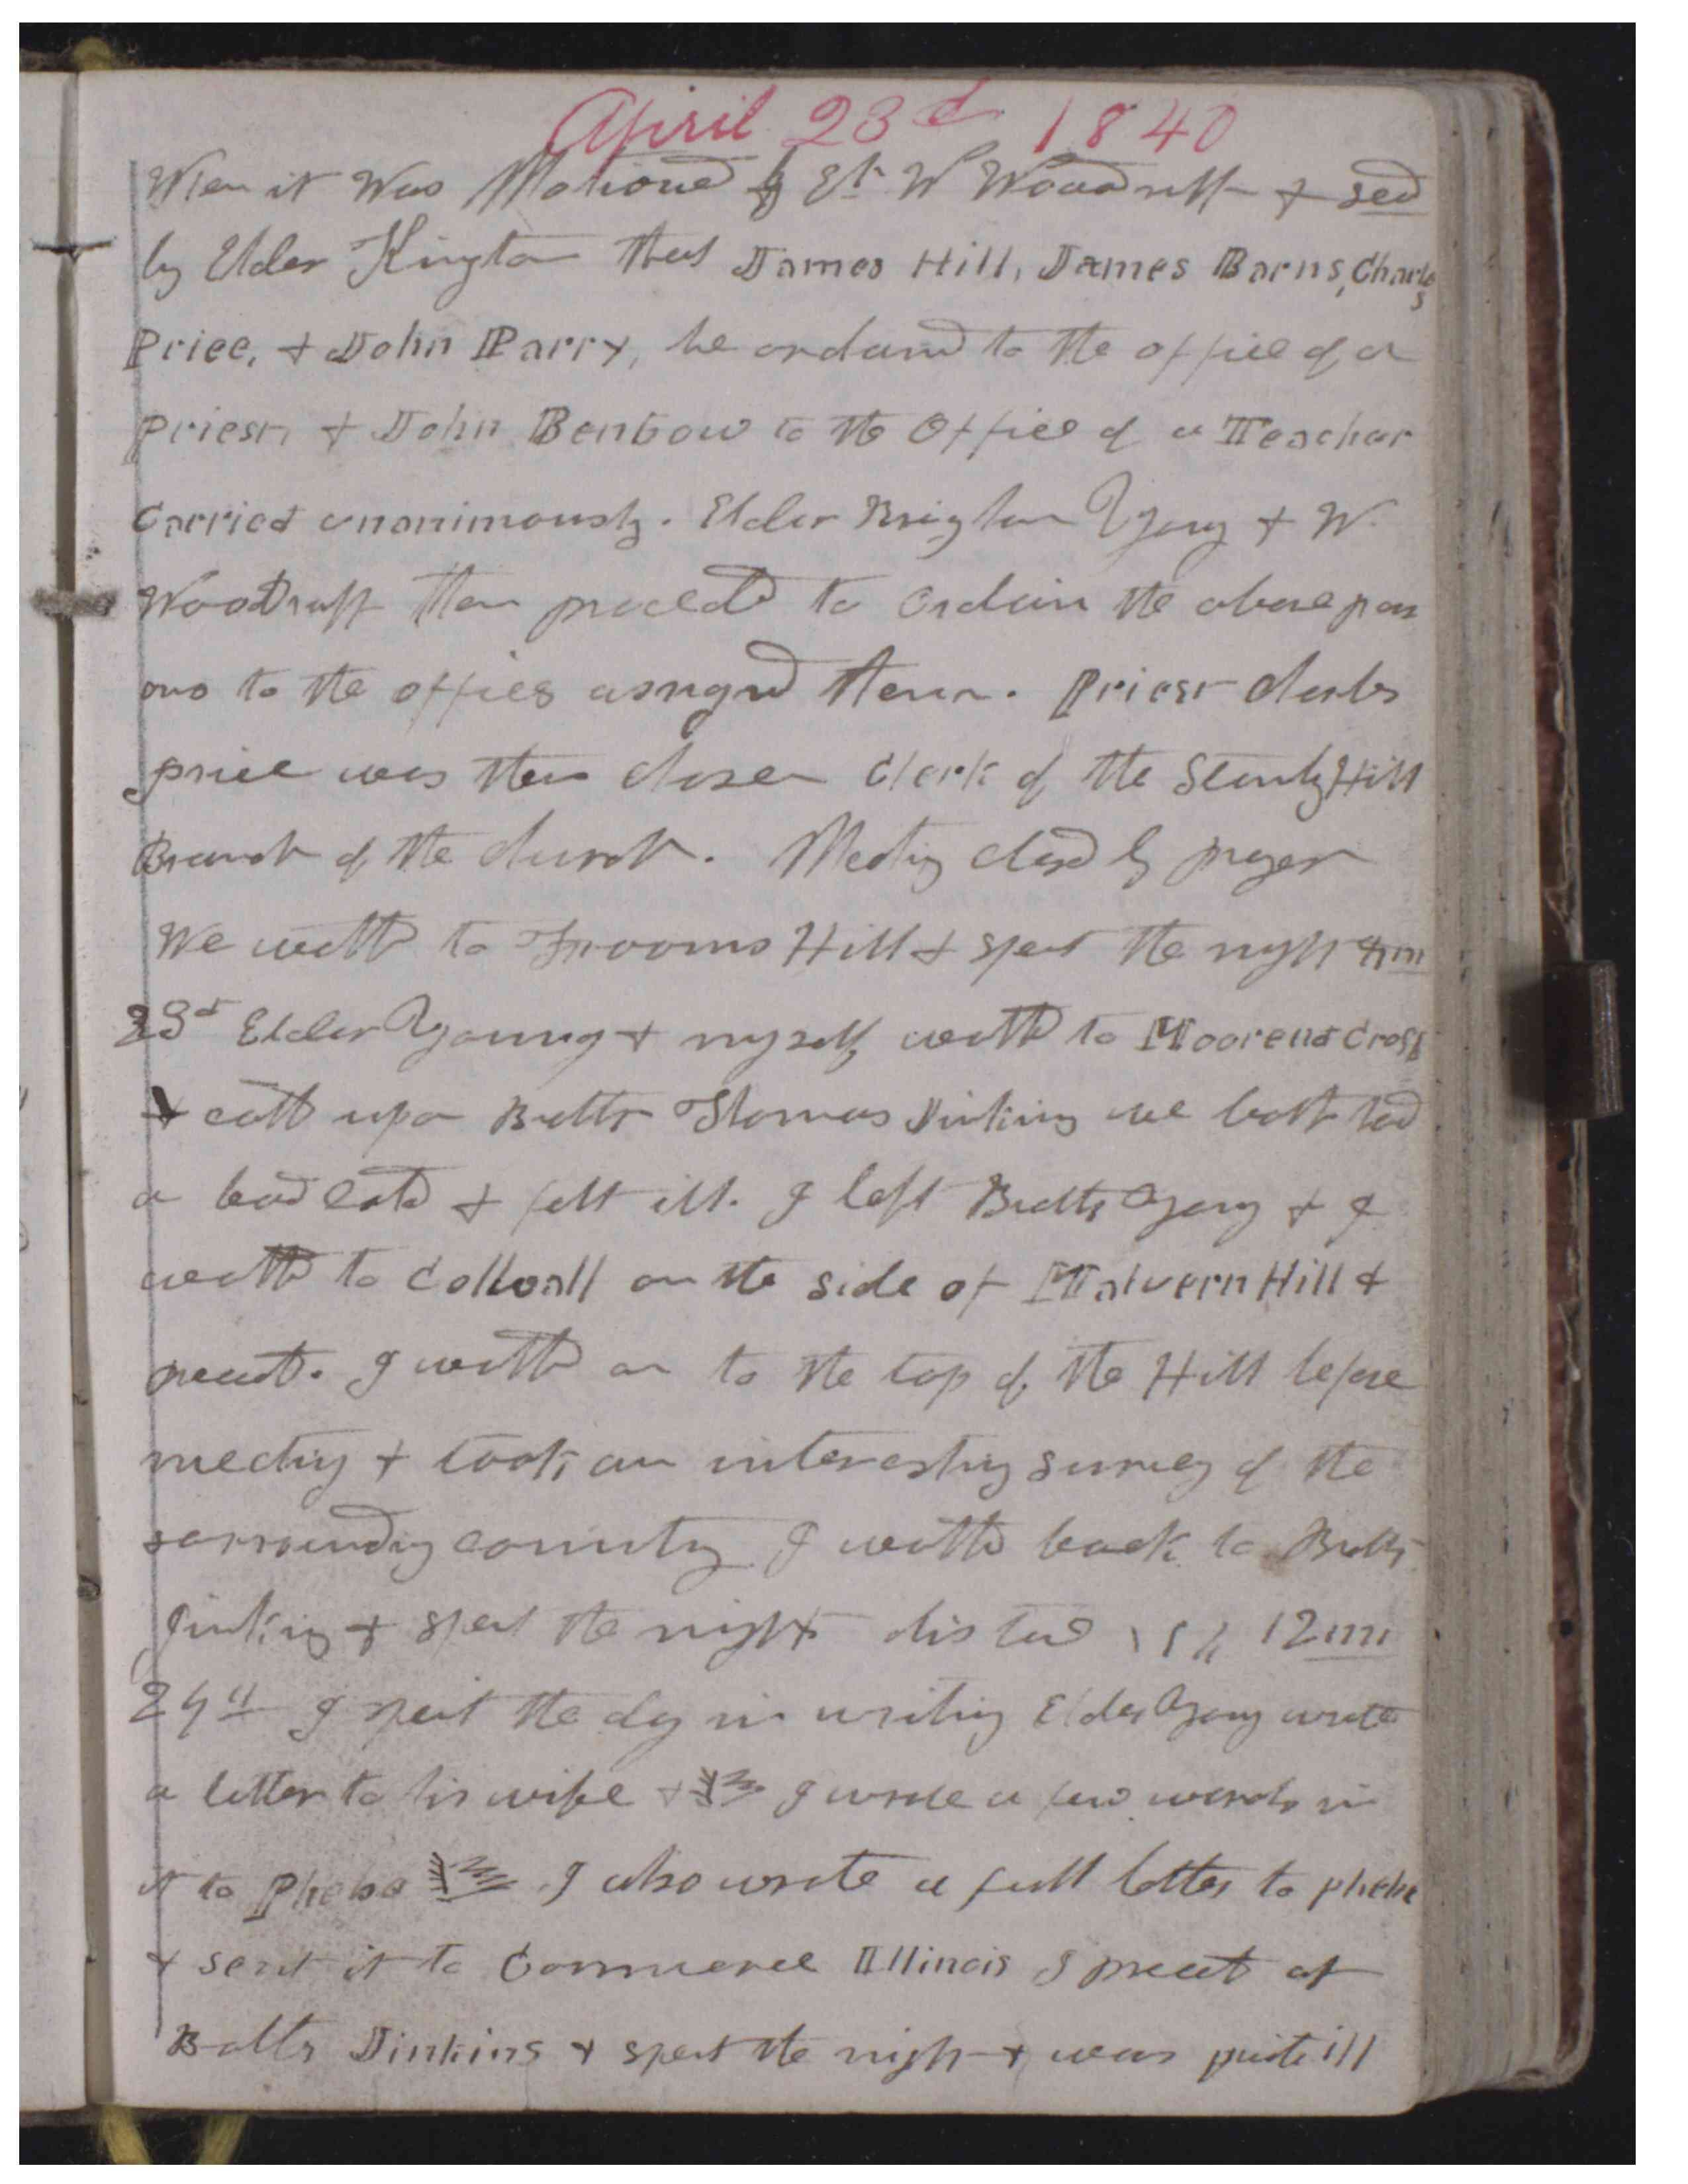 April 23d 1840
When it was Motioned by Eld W Woodruff & Sed
by Elder Kington that James Hill, James Barns, Charles
Price, & John Parry, be ordaind to the office of a
Priest, & John Benbow to the Office of a Teachar
Carried unonimously. Elder Brigham Young & W.
Woodruff then proceded to ordain the above pers
ons to the offices assigned them. Priest Charles
price was then chosen Clerk of the Stanly Hill
Branch of the church. Meeting closed by prayer
We walked to Frooms Hill & spent the night 4 m
23d Elder Young & myself walked to Moorend Cross
& calld upon Brother Thomas Jinkins we both had
a bad cold & felt ill. I left Brother Young & I
walked to Collwall on the side of Malvern Hill &
preachd. I walked on to the top of the Hill before
meeting & took an interesting survey of the
surrounding country I walked back to Brother
Jinkins & spent the night distance 12 m
24th I spent the day in writing Elder Young wrote
a letter to his wife & I wrote a few words in
it to Phebe I also wrote a full letter to phebe
& sent it to Commerce Illinois I preachd at
Brothr Jinkins & spent the night & was quite ill